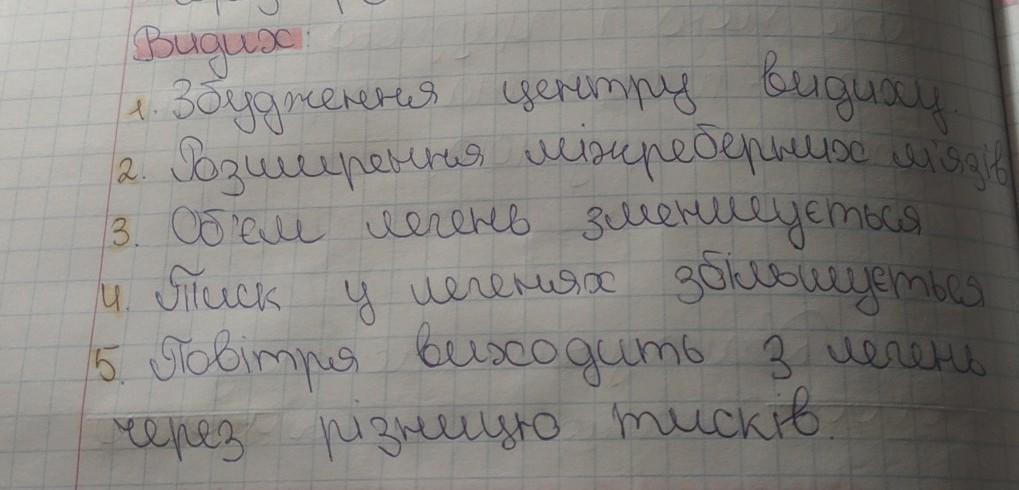 Видих:
1. Збудження центру видиху.
2. Розширення міжреберних м'язів
3. Об'єм легень зменшується
4. Тиск у легенях збільшується
5. Повітря виходить з легень
через різницю тисків.